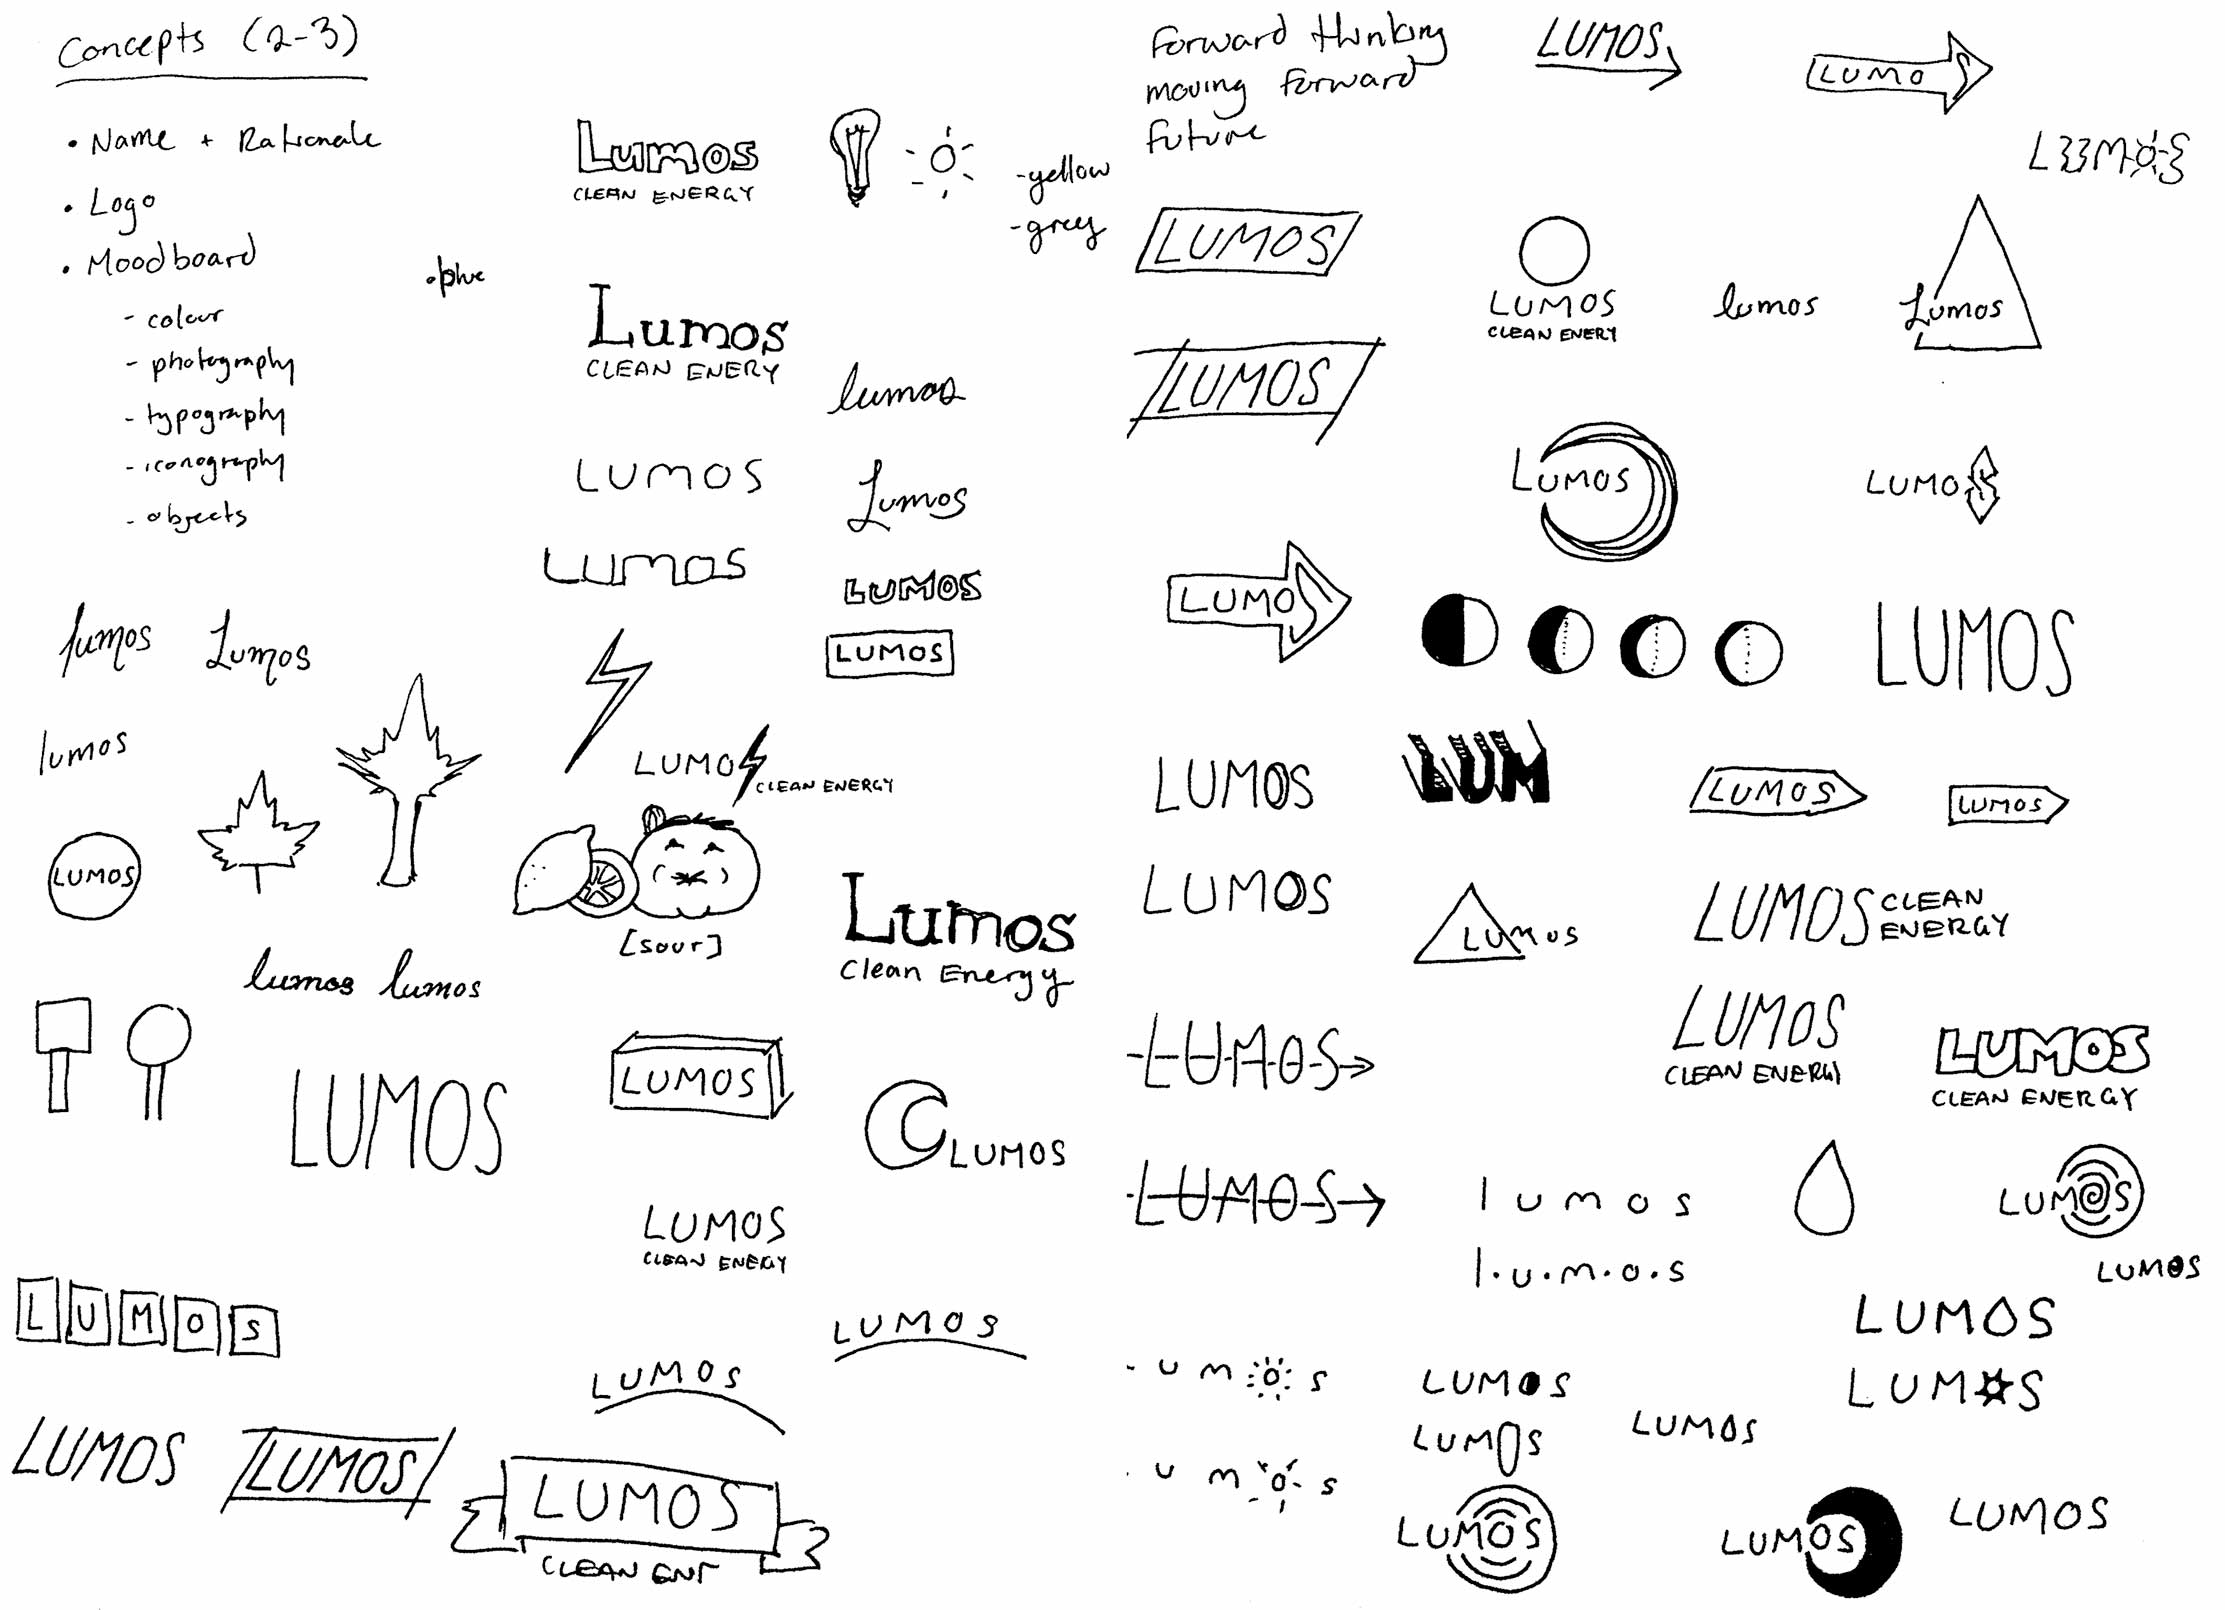 Concepts (2-3)
• Name + Rationale
• Logo
• Moodboard
- colour
- photography
- typography
- iconography
- objects
• blue
Lumos
CLEAN ENERGY
- yellow
- grey
Lumos
CLEAN ENERY
lumos
LUMOS
Lumos
LUMOS
LUMOS
LUMOS
lumos
Lumos
lumos
LUMOS
CLEAN ENERGY
LUMOS
[sour]
Lumos
Clean Energy
lumos lumos
LUMOS
LUMOS
LUMOS
LUMOS
CLEAN ENERGY
LUMOS
LUMOS
LUMOS
LUMOS
LUMOS
LUMOS
CLEAN
Forward thinking
moving forward
future
LUMOS
LUMOS
LUMOS
LUMOS
CLEAN ENERY
lumos
Lumos
LUMOS
LUMOS
LUMOS
LUMOS
LUMOS
LUMOS
LUM
LUMOS
LUMOS
LUMOS
LUMOS
LUMOS CLEAN
ENERGY
LUMOS
LUMOS
CLEAN ENERGY
LUMOS
CLEAN ENERGY
LUMOS
lumos
LUMOS
l.u.m.o.s
LUMOS
LUMOS
umos
LUMOS
LUMOS
LUMOS
LUMOS
umos
LUMOS
LUMOS
LUMOS